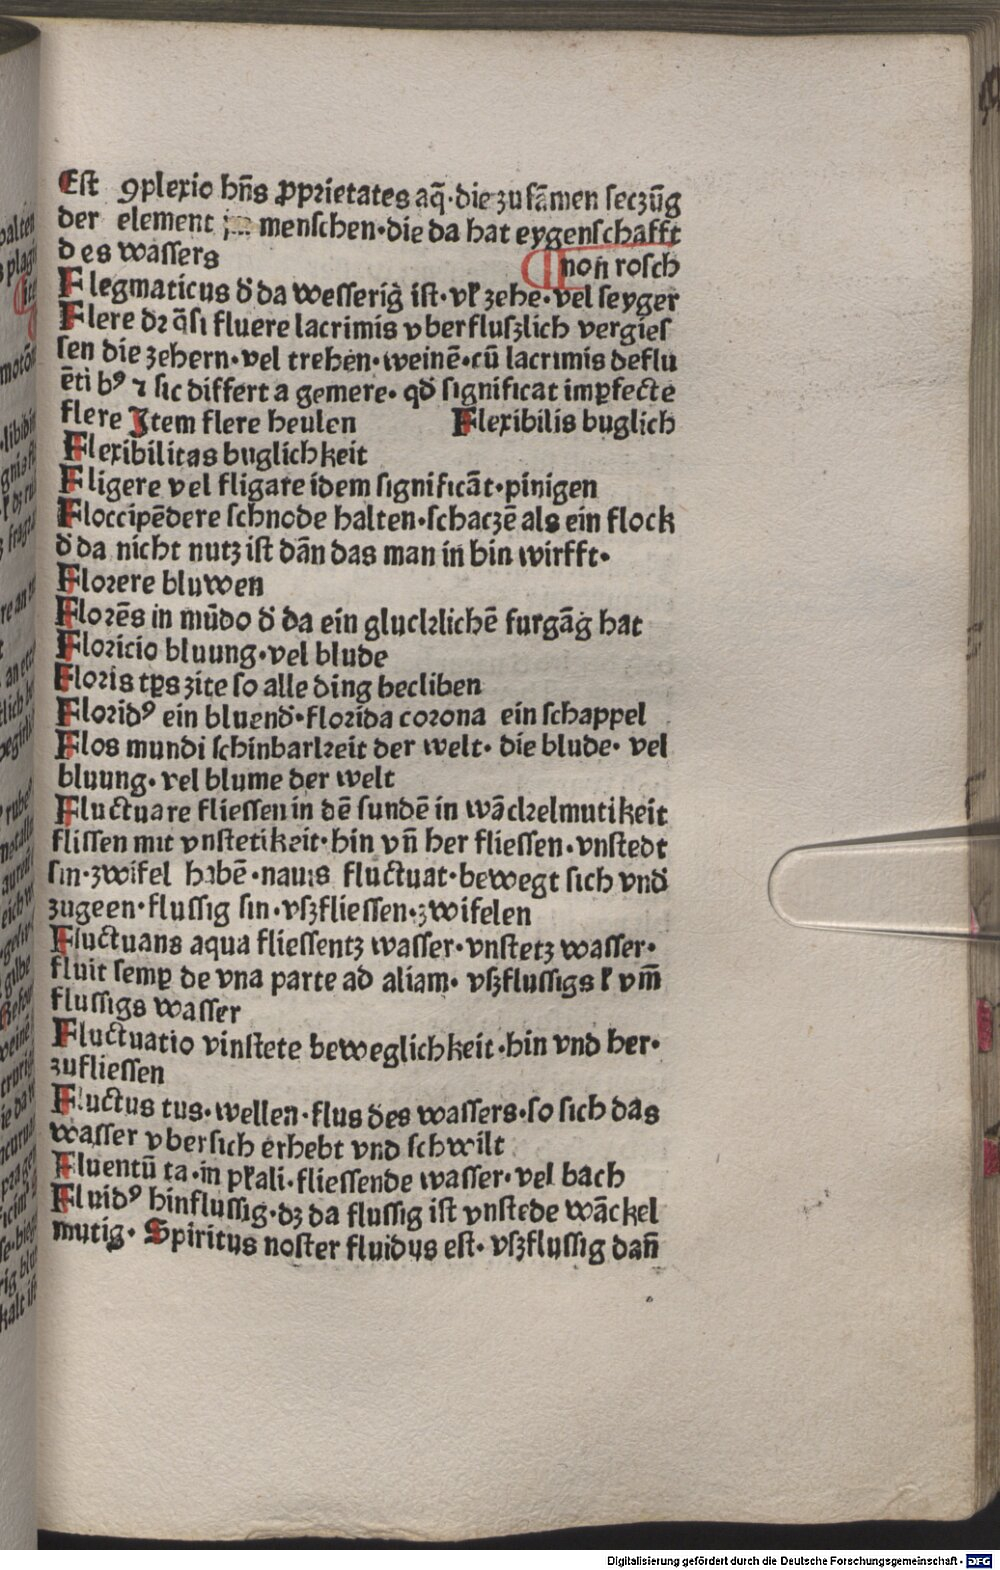 Est ꝯplexio hn̄s ꝓprietates aq̄·die zu sāmen seczūg
der element menschen·die da hat eygenschafft
des wassers
non rosch
Flegmaticus đ da wesserig ist·vꝉ zehe·vel seyger
Flere dꝛ q̄si fluere lacrimis vberfluſzlich vergies
sen die zehern·vel trehen·weinē·cū lacrimis deflu
ētibꝰ ⁊ sic differt a gemere·qđ significat imꝑfecte
flere Item flere heulen Flexibilis buglich
Flexibilitas buglichkeit
Fligere vel fligare idem significāt·pinigen
Floccipēdere schnode halten·schaczē als ein flock
đ da nicht nutz ist dān das man in hin wirfft·
Florere bluwen
Florēs in mūdo đ da ein glucklichē furgāg hat
Floricio bluung·vel blude
Floris tꝑs zite so alle ding becliben
Floridꝰ ein bluend·florida corona ein schappel
Flos mundi schinbarkeit der welt·die blude·vel
bluung·vel blume der welt
Fluctuare fliessen in dē sundē in wāckelmutikeit
flissen mit vnstetikeit·hin vn̄ her fliessen·vnstedt
sin·zwifel habē·nauis fluctuat·bewegt sich vnd
zugeen·flussig sin·vſzfliessen·zwifelen
Fluctuans aqua fliessentz wasser·vnstetz wasser·
fluit semꝑ de vna parte ad aliam·vſzflussigs ꝉ vm̄
flussigs wasser
Fluctuatio vinstete beweglichkeit·hin vnd her·
zufliessen
Fluctus tus·wellen·flus des wassers·so sich das
wasser vbersich erhebt vnd schwilt
Fluentū ta·in pꝉali·fliessende wasser·vel bach
Fluidꝰ hinflussig·dz da flussig ist vnstede wāckel
mutig·Spiritus noster fluidus est·vſzflussig dan̄
Digitalisierung gefördert durch die Deutsche Forschungsgemeinschaft · DFG